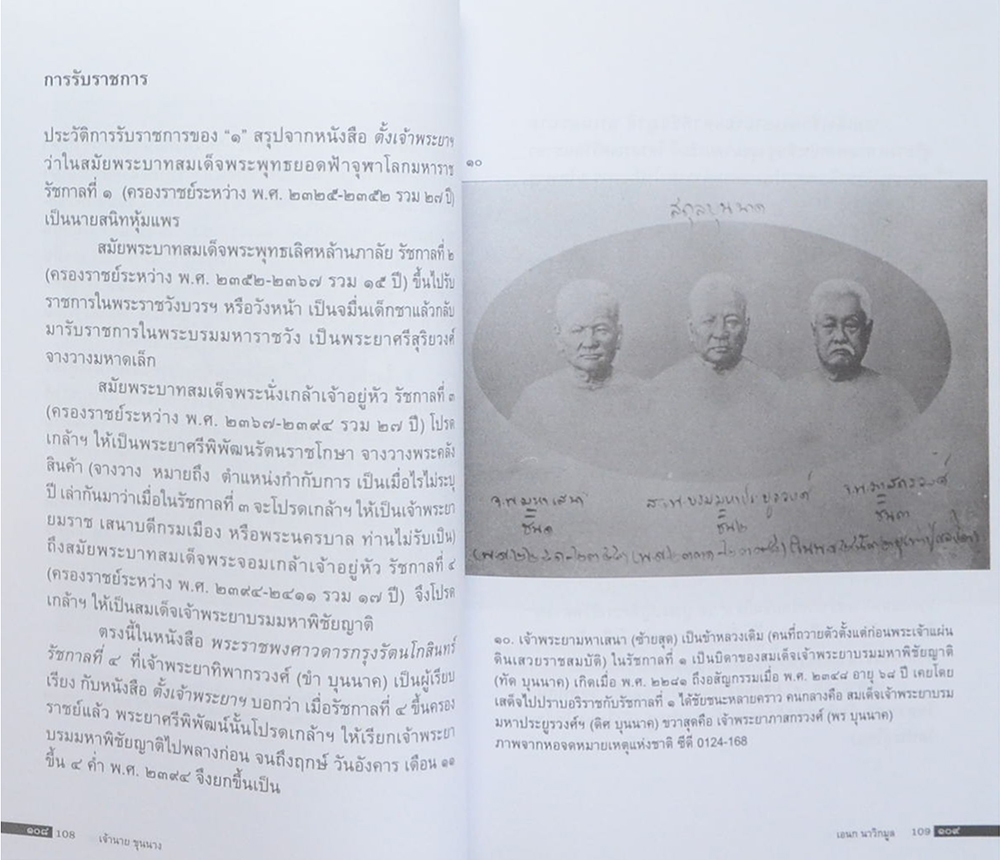 การรับราชการ
ประวัติการรับราชการของ “๑” สรุปจากหนังสือ ตั้งเจ้าพระยาฯ
ว่าในสมัยพระบาทสมเด็จพระพุทธยอดฟ้าจุฬาโลกมหาราช
รัชกาลที่ ๑ (ครองราชย์ระหว่าง พ.ศ. ๒๓๒๕-๒๓๕๒ รวม ๒๗ ปี)
เป็นนายสนิทหุ้มแพร
สมัยพระบาทสมเด็จพระพุทธเลิศหล้านภาลัย รัชกาลที่ ๒
(ครองราชย์ระหว่าง พ.ศ. ๒๓๕๒-๒๓๖๗ รวม ๑๕ ปี) ขึ้นไปรับ
ราชการในพระราชวังบวรฯ หรือวังหน้า เป็นจมื่นเด็กชาแล้วกลับ
มารับราชการในพระบรมมหาราชวัง เป็นพระยาศรีสุริยวงศ์
จางวางมหาดเล็ก
สมัยพระบาทสมเด็จพระนั่งเกล้าเจ้าอยู่หัว รัชกาลที่ ๓
(ครองราชย์ระหว่าง พ.ศ. ๒๓๖๗-๒๓๙๔ รวม ๒๗ ปี) โปรด
เกล้าฯ ให้เป็นพระยาศรีพิพัฒนรัตนราชโกษา จางวางพระคลัง
สินค้า (จางวาง หมายถึง ตำแหน่งกำกับการ เป็นเมื่อไรไม่ระบุ
ปี เล่ากันมาว่าเมื่อในรัชกาลที่ ๓ จะโปรดเกล้าฯ ให้เป็นเจ้าพระยา
ยมราช เสนาบดีกรมเมือง หรือพระนครบาล ท่านไม่รับเป็น)
ถึงสมัยพระบาทสมเด็จพระจอมเกล้าเจ้าอยู่หัว รัชกาลที่ ๔
(ครองราชย์ระหว่าง พ.ศ. ๒๓๙๔-๒๔๑๑ รวม ๑๗ ปี) จึงโปรด
เกล้าฯ ให้เป็นสมเด็จเจ้าพระยาบรมมหาพิชัยญาติ
ตรงนี้ในหนังสือ พระราชพงศาวดารกรุงรัตนโกสินทร์
รัชกาลที่ ๔ ที่เจ้าพระยาทิพากรวงศ์ (ขำ บุนนาค) เป็นผู้เรียบ
เรียง กับหนังสือ ตั้งเจ้าพระยาฯ บอกว่า เมื่อรัชกาลที่ ๔ ขึ้นครอง
ราชย์แล้ว พระยาศรีพิพัฒน์นั้นโปรดเกล้าฯ ให้เรียกเจ้าพระยา
บรมมหาพิชัยญาติไปพลางก่อน จนถึงฤกษ์ วันอังคาร เดือน ๑๑
ขึ้น ๔ ค่ำ พ.ศ. ๒๓๙๔ จึงยกขึ้นเป็น
๑๐๘ 108 เจ้านาย ขุนนาง
๑๐
สกุลบุนนาค
จ.พ.มหาเสนา ส.จ.พ.บรมมหาประยูรวงศ์ จ.พ.ภาสกรวงศ์
ชั้น๑ ชั้น๒ ชั้น๓
๑๐. เจ้าพระยามหาเสนา (ซ้ายสุด) เป็นข้าหลวงเดิม (คนที่ถวายตัวตั้งแต่ก่อนพระเจ้าแผ่น
ดินเสวยราชสมบัติ) ในรัชกาลที่ ๑ เป็นบิดาของสมเด็จเจ้าพระยาบรมมหาพิชัยญาติ
(ทัด บุนนาค) เกิดเมื่อ พ.ศ. ๒๒๘๑ ถึงอสัญกรรมเมื่อ พ.ศ. ๒๓๔๘ อายุ ๖๘ ปี เคยโดย
เสด็จไปปราบอริราชกับรัชกาลที่ ๑ ได้ชัยชนะหลายคราว คนกลางคือ สมเด็จเจ้าพระยาบรม
มหาประยูรวงศ์ฯ (ดิศ บุนนาค) ขวาสุดคือ เจ้าพระยาภาสกรวงศ์ (พร บุนนาค)
ภาพจากหอจดหมายเหตุแห่งชาติ ซีดี 0124-168
เอนก นาวิกมูล 109 ๑๐๙